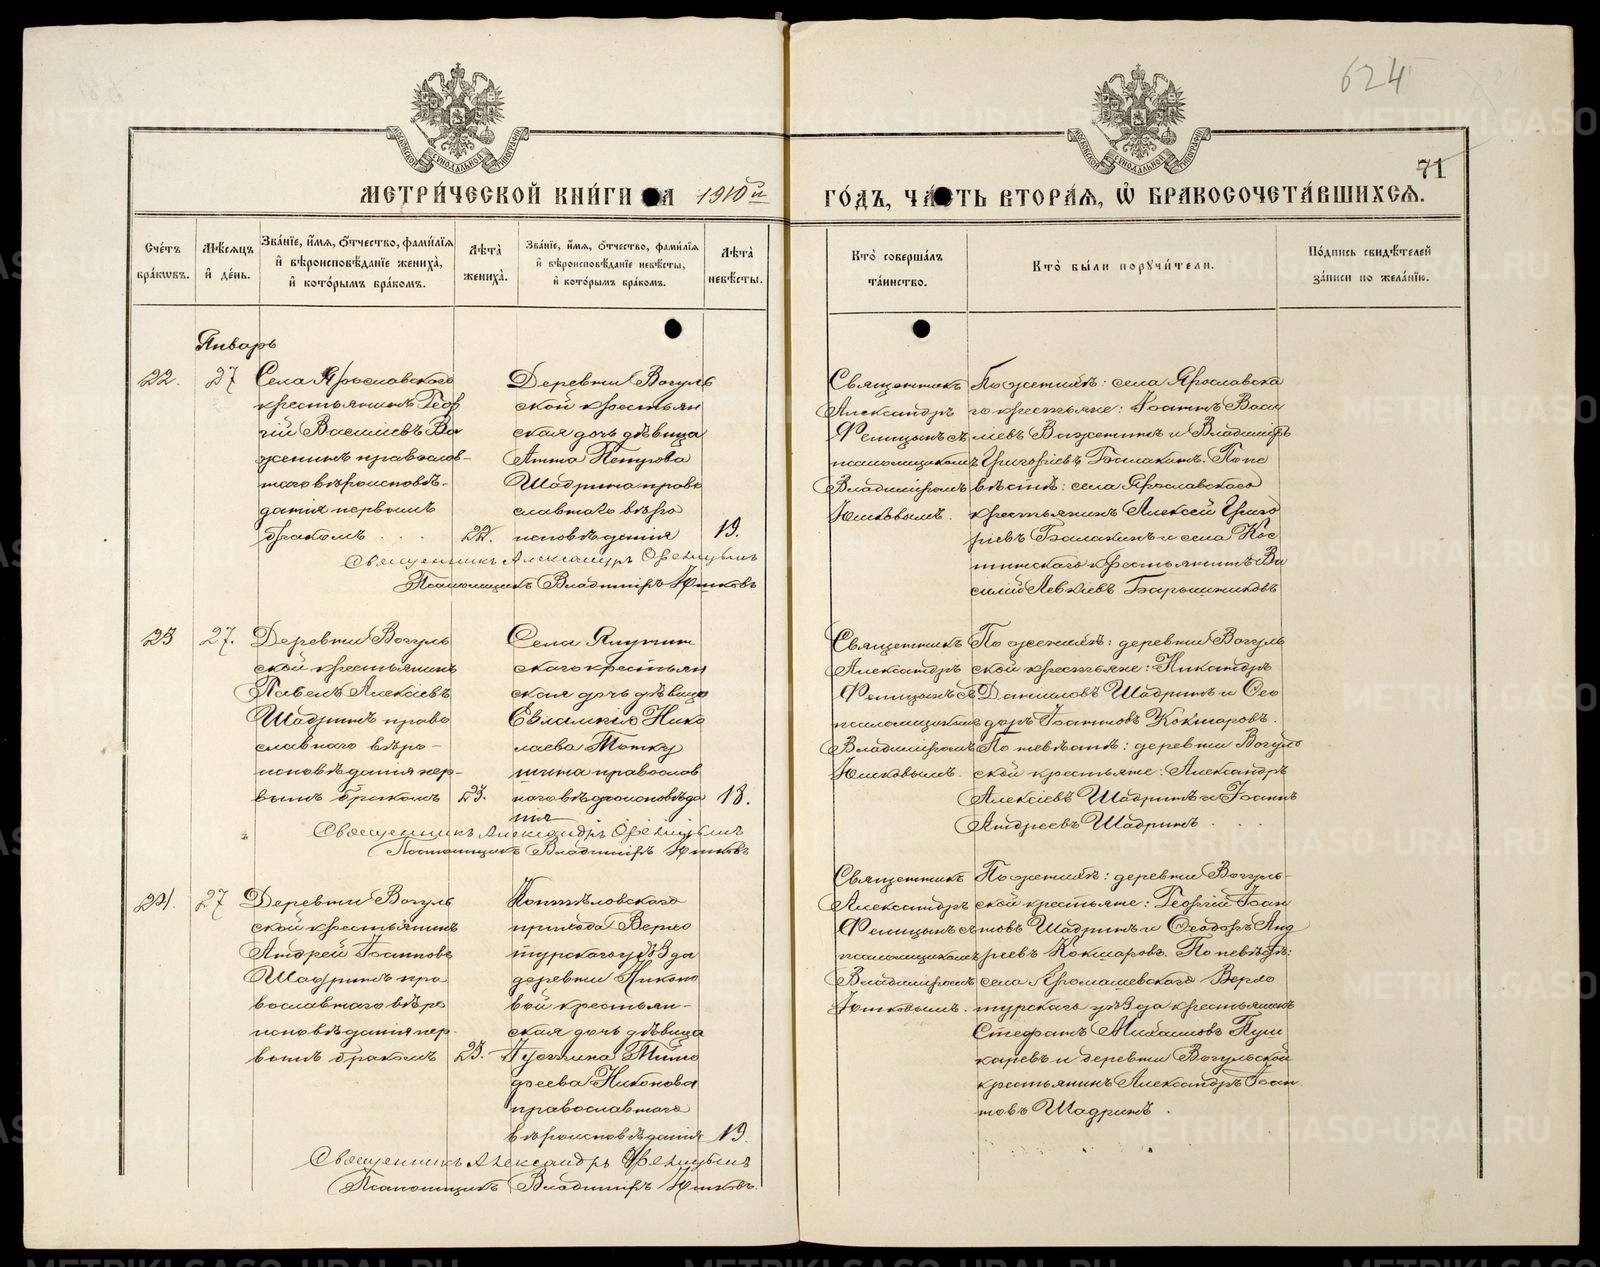 624
71
МЕТРИ́ЧЕСКОЙ КНИ́ГИ НА 1910й ГО́ДЪ, ЧА́СТЬ ВТОРА́Я, Ѡ҆ БРАКОСОЧЕТА́ВШИХСЯ.
Сче́тъ бра́ковъ.
Мѣ́сяцъ и де́нь.
Зва́нїе, и́мя, ѻ́тчество, фами́лїя и вѣроисповѣ́данїе жениха̀, и кото́рымъ бра́комъ.
Лѣ́та жениха̀.
Зва́нїе, и́мя, ѻ́тчество, фами́лїя и вѣроисповѣ́данїе невѣ́сты, и кото́рымъ бра́комъ.
Лѣ́та невѣ́сты.
Кто̀ соверша́лъ та́инство.
Кто̀ бы́ли поручи́тели.
По́дпись свидѣ́телей за́писи по жела́нїю.
Январь
22.
27
Села Ярославскаго
крестьянинъ Геор
гій Василіевъ Ва
женинъ православ-
наго вѣроисповѣ-
данія первымъ
бракомъ . . .
22.
Деревни Вогуль
ской крестьян
ская дочь дѣвица
Анна Петрова
Шадрина право
славнаго вѣро
исповѣданія
19.
Священникъ
Александръ
Фелицынъ съ
псаломщикомъ
Владиміромъ
Юшковымъ.
По женихѣ: села Ярославска
го крестьяне: Іоаннъ Васи
ліевъ Важенинъ и Владиміръ
Григоріевъ Балакинъ. По не
вѣстѣ: села Ярославскаго
крестьянинъ Алексѣй Григо
ріевъ Балакинъ и села Кос
тинскаго крестьянинъ Ва
силій Барышниковъ
Священникъ Александръ Фелицынъ
Псаломщикъ Владиміръ Юшковъ
23
27.
Деревни Вогуль
ской крестьянинъ
Павелъ Алексіевъ
Шадринъ право
славнаго вѣро-
исповѣданія пер-
вымъ бракомъ
23.
Села
скаго крестьян
ская дочь дѣвица
Евлампія Нико
лаева
православ
наго вѣроисповѣда
нія
18.
Священникъ
Александръ
Фелицынъ съ
псаломщикомъ
Владиміромъ
Юшковымъ.
По женихѣ: деревни Вогуль
ской крестьяне: Никандръ
Даниловъ Шадринъ и Ѳео
доръ Іоанновъ Кокшаровъ.
По невѣстѣ: деревни Вогуль
ской крестьяне: Александръ
Алексіевъ Шадринъ и Іоаннъ
Андреевъ Шадринъ . . .
Священникъ Александръ Фелицынъ
Псаломщикъ Владиміръ Юшковъ
24.
27
Деревни Вогуль
ской крестьянинъ
Андрей Іоанновъ
Шадринъ пра
вославнаго вѣро
исповѣданія пер-
вымъ бракомъ
23.
прихода Верхо
турскаго уѣзда
деревни Никоно
вой крестьян-
ская дочь дѣвица
Іустина Тимо
феева Никонова
православнаго
вѣроисповѣданія
19.
Священникъ
Александръ
Фелицынъ съ
псаломщикомъ
Владиміромъ
Юшковымъ.
По женихѣ: деревни Вогуль-
ской крестьяне: Георгій Іоан
новъ Шадринъ и Ѳеодоръ Анд
реевъ Кокшаровъ. По невѣстѣ:
села Верхо
турскаго уѣзда крестьянинъ
Стефанъ Михаиловъ Пуш
каревъ и деревни Вогульской
крестьянинъ Александръ Іоан
новъ Шадринъ.
Священникъ Александръ Фелицынъ
Псаломщикъ Владиміръ Юшковъ.
METRIKI.GASO-URAL.RU